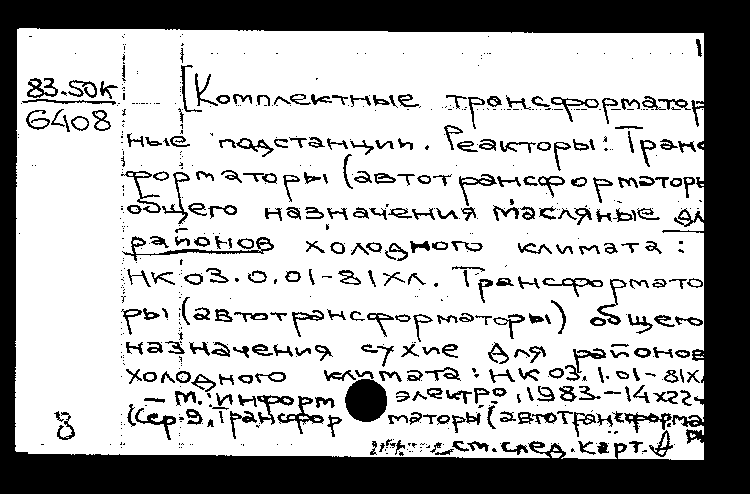 1
83.50К
6408
[Комплектные трансформатор
ные подстанции. Реакторы: Транс
форматоры (автотрансформаторы
общего назначения масляные дл
районов холодного климата:
НК 03.0.01-81ХЛ. Трансформато
ры (автотрансформаторы) общего
назначения сухие для районов
холодного климата: НК 03.1.01-81Х
— М.: Информэлектро, 1983.-14х22
(Сер. 9, Трансформаторы (автотрансформа
ры
8
см. след. карт.